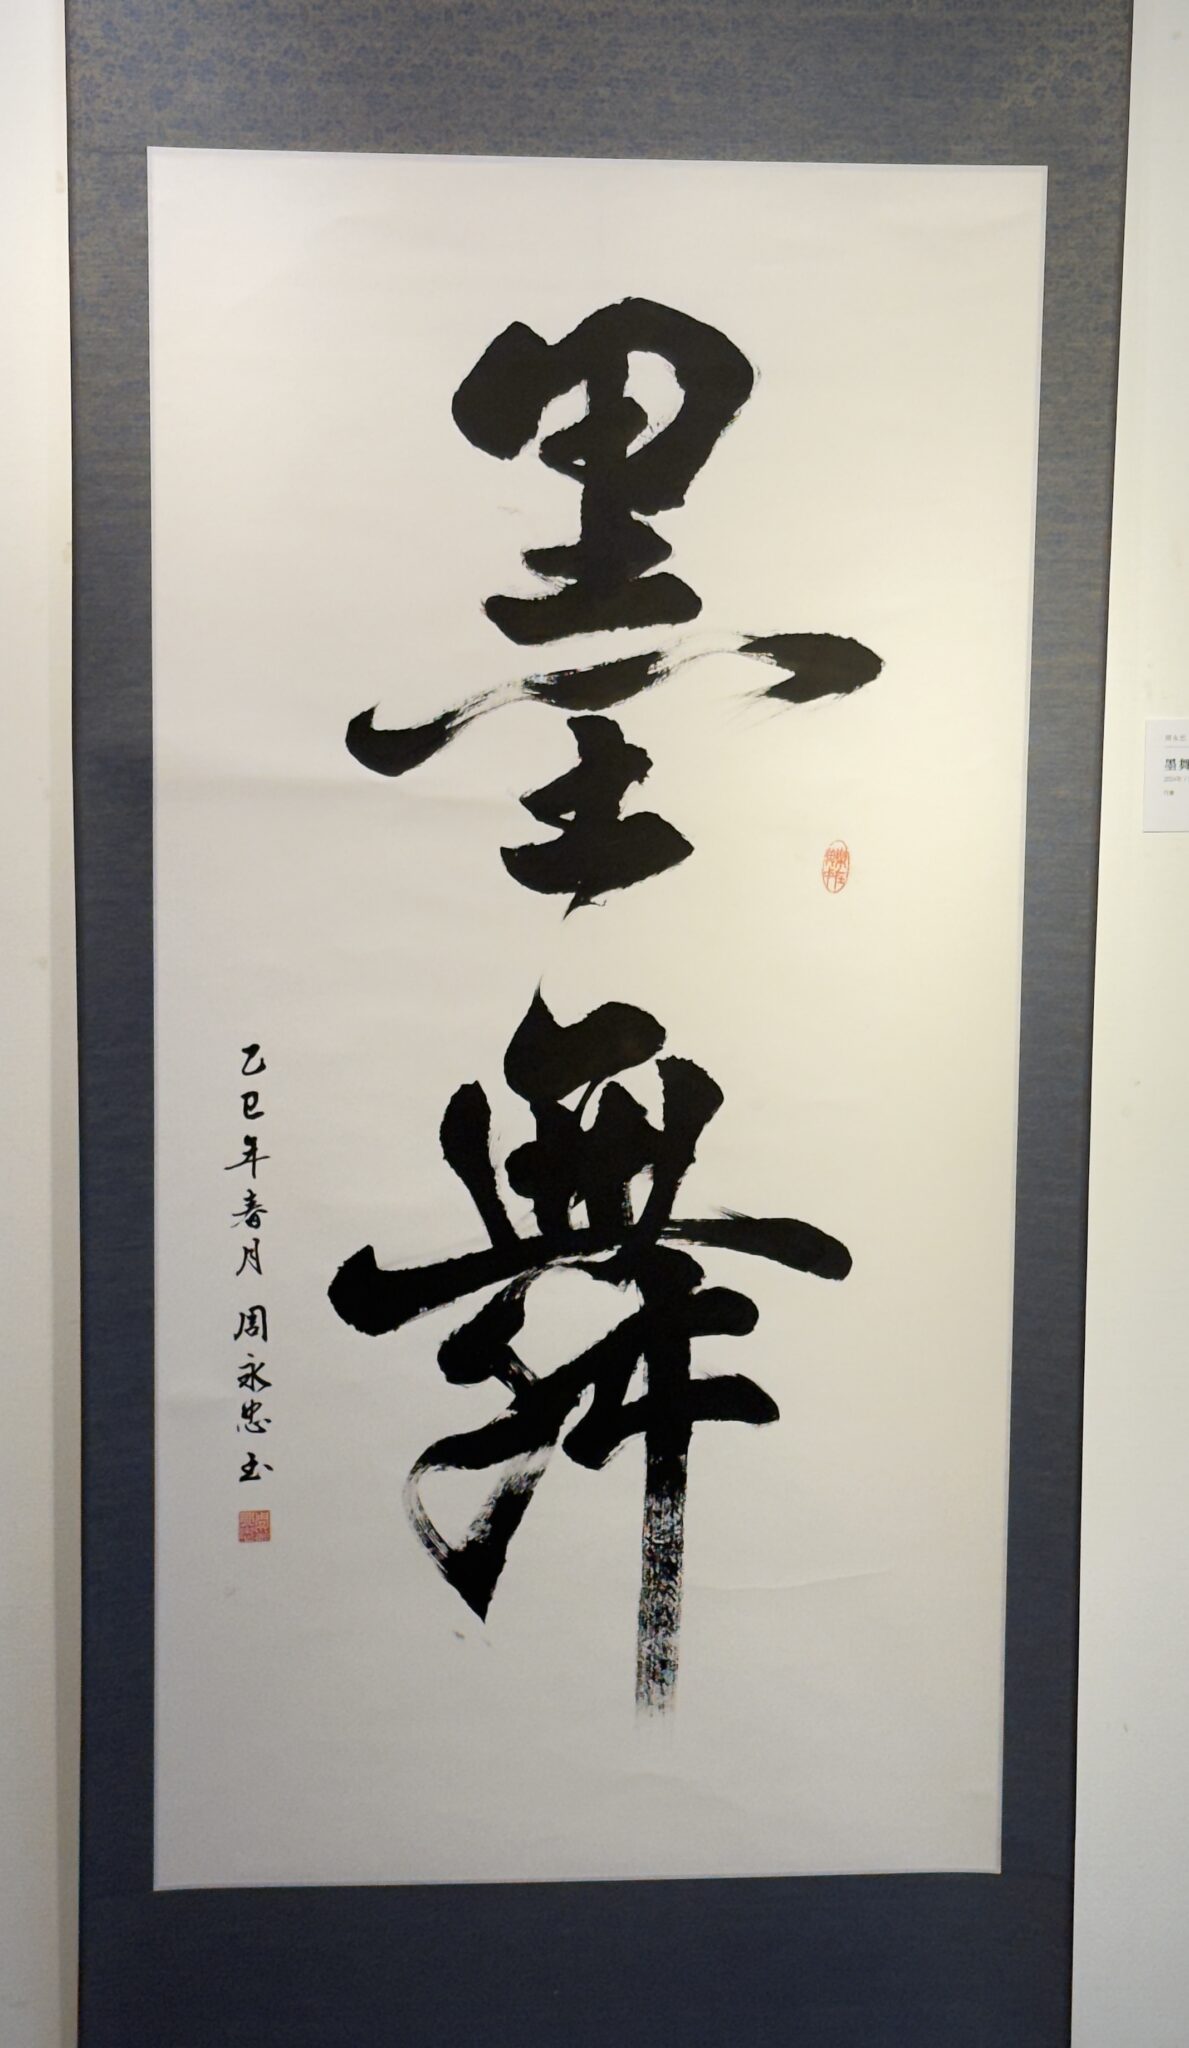 墨舞
乙巳年春月 周永忠玉
墨舞